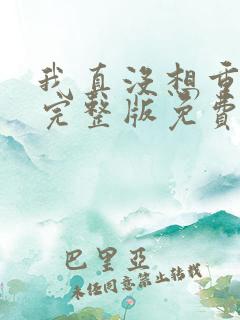 我真没想重
完整版免费
巴里亞
未经同意禁止转载